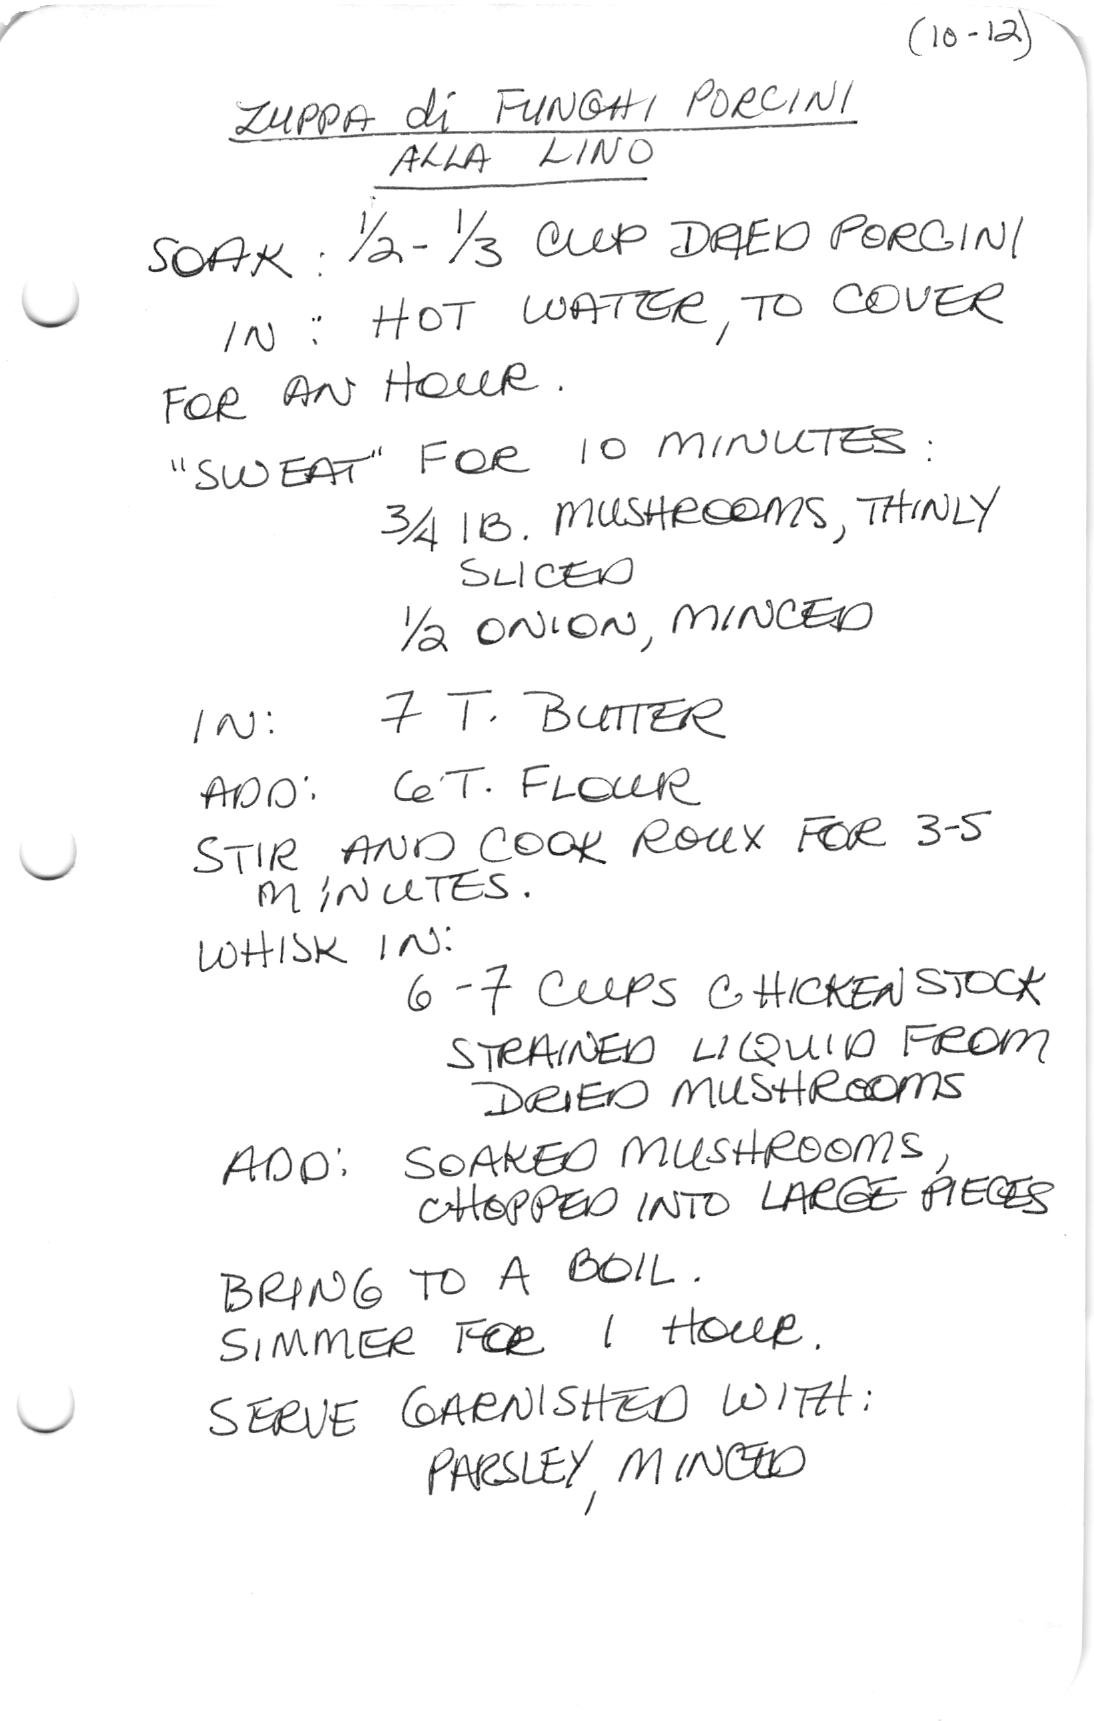 (10-12)
ZUPPA di FUNGHI PORCINI
ALLA LINO
SOAK: 1/2 - 1/3 CUP DRIED PORCINI
IN: HOT WATER, TO COVER
FOR AN HOUR.
"SWEAT" FOR 10 MINUTES:
3/4 lB. MUSHROOMS, THINLY
SLICED
1/2 ONION, MINCED
IN: 7 T. BUTTER
ADD: 6 T. FLOUR
STIR AND COOK ROUX FOR 3-5
MINUTES.
WHISK IN:
6-7 CUPS CHICKEN STOCK
STRAINED LIQUID FROM
DRIED MUSHROOMS
ADD: SOAKED MUSHROOMS,
CHOPPED INTO LARGE PIECES
BRING TO A BOIL.
SIMMER FOR 1 HOUR.
SERVE GARNISHED WITH:
PARSLEY, MINCED